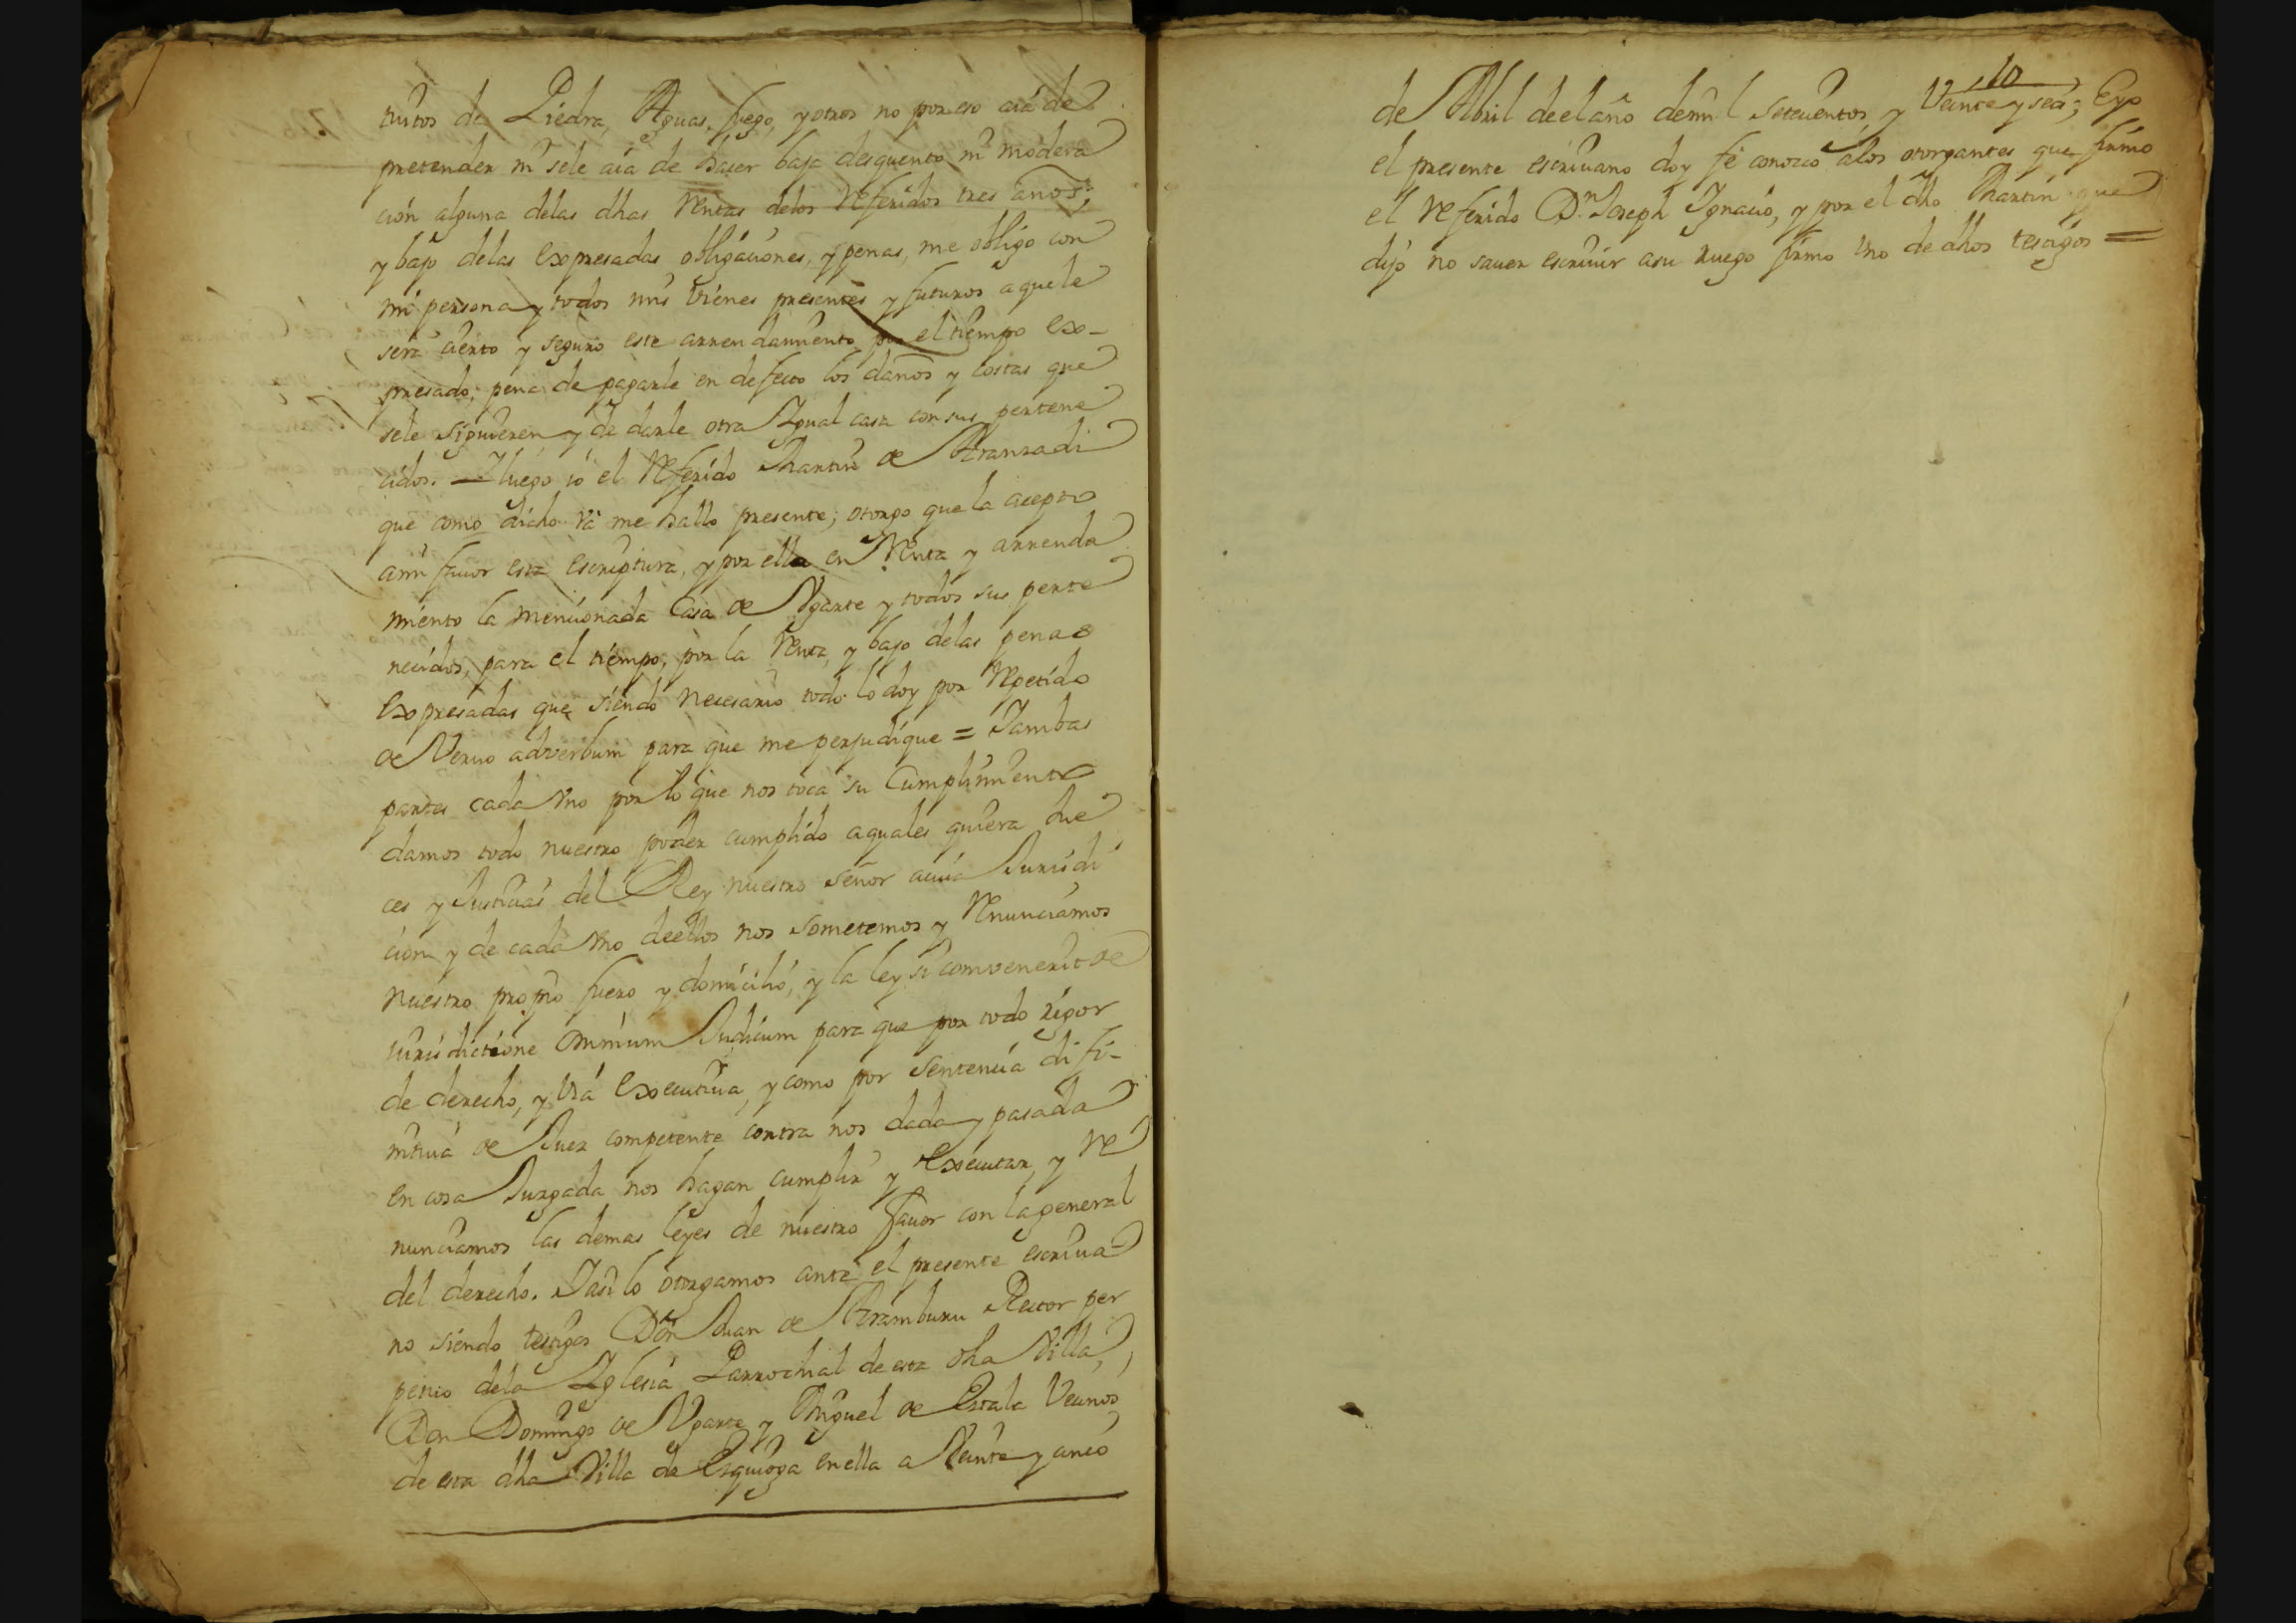 tuitos de Piedra, Aguas, fuego, y otros no por eso aiá de
pretender ni sele aía de haser baja desquento ni modera
ción alguna delas dhas Rentas delos Referidos tres años,
y bajo delas Expresadas obligaciones, y penas, me obligo con
mi persona y todos mis Vienes presentes y futuros aquele
será cierto y seguro este arrendamiento por el tiempo Ex-
presado; pena de pagarle en defecto los daños y Costas que
sele siguieren y de darle otra Igual casa con sus pertene
cidos. = I luego io el Referido Martin de Aranzadi
que como dicho vá me hallo presente; otorgo que la acepto
ami favor esta Escriptura, y por ella en Renta y arrenda
miento la mencionada Casa de Vgarte y todos sus perte
necidos, para el tiempo, por la Renta, y bajo delas penas
Expresadas que siendo Necesario todo lo doy por Repetido
de Veruo adverbum para que me perjudique = Iambas
partes cada Vno por lo que nos toca su Cumplimiento
damos todo nuestro poder cumplido aquales quiera Jue
ces y Justicias del Rey nuestro señor acuia Jurisdi
ción y de cada Vno deellos nos sometemos y Renunciamos
nuestro propio fuero y domicilio, y la ley si convenerit de
iurisdictione omnium Judicum para que por todo rigor
de derecho, y Vía Executiua, y como por Sentencia difi-
nitiua de Juez competente contra nos dada y pasada
en cosa Juzgada nos hagan cumplir y Executar, y Re
nunciamos las demas leyes de nuestro favor con la general
del derecho. Iasi lo otorgamos ante el presente escriua-
no siendo testigos Don Juan de Aramburu Rector per
petuo dela Iglesia Parrochial de esta dha Villa,
Don Domingo de Vgarte y Miguel de Estala Vecinos
de esta dha Villa de Ezquioga en ella a Veinte y cinco
10
de Abril deel año demil setecientos, y Veinte y seis; Eyo
el presente escriuano doy fé conozco alos otorgantes que firmo
el Referido Dn Joseph Ignacio, y por el dho Martin que
dijo no sauer escriuir asu ruego firmo Vno de dhos testigos =